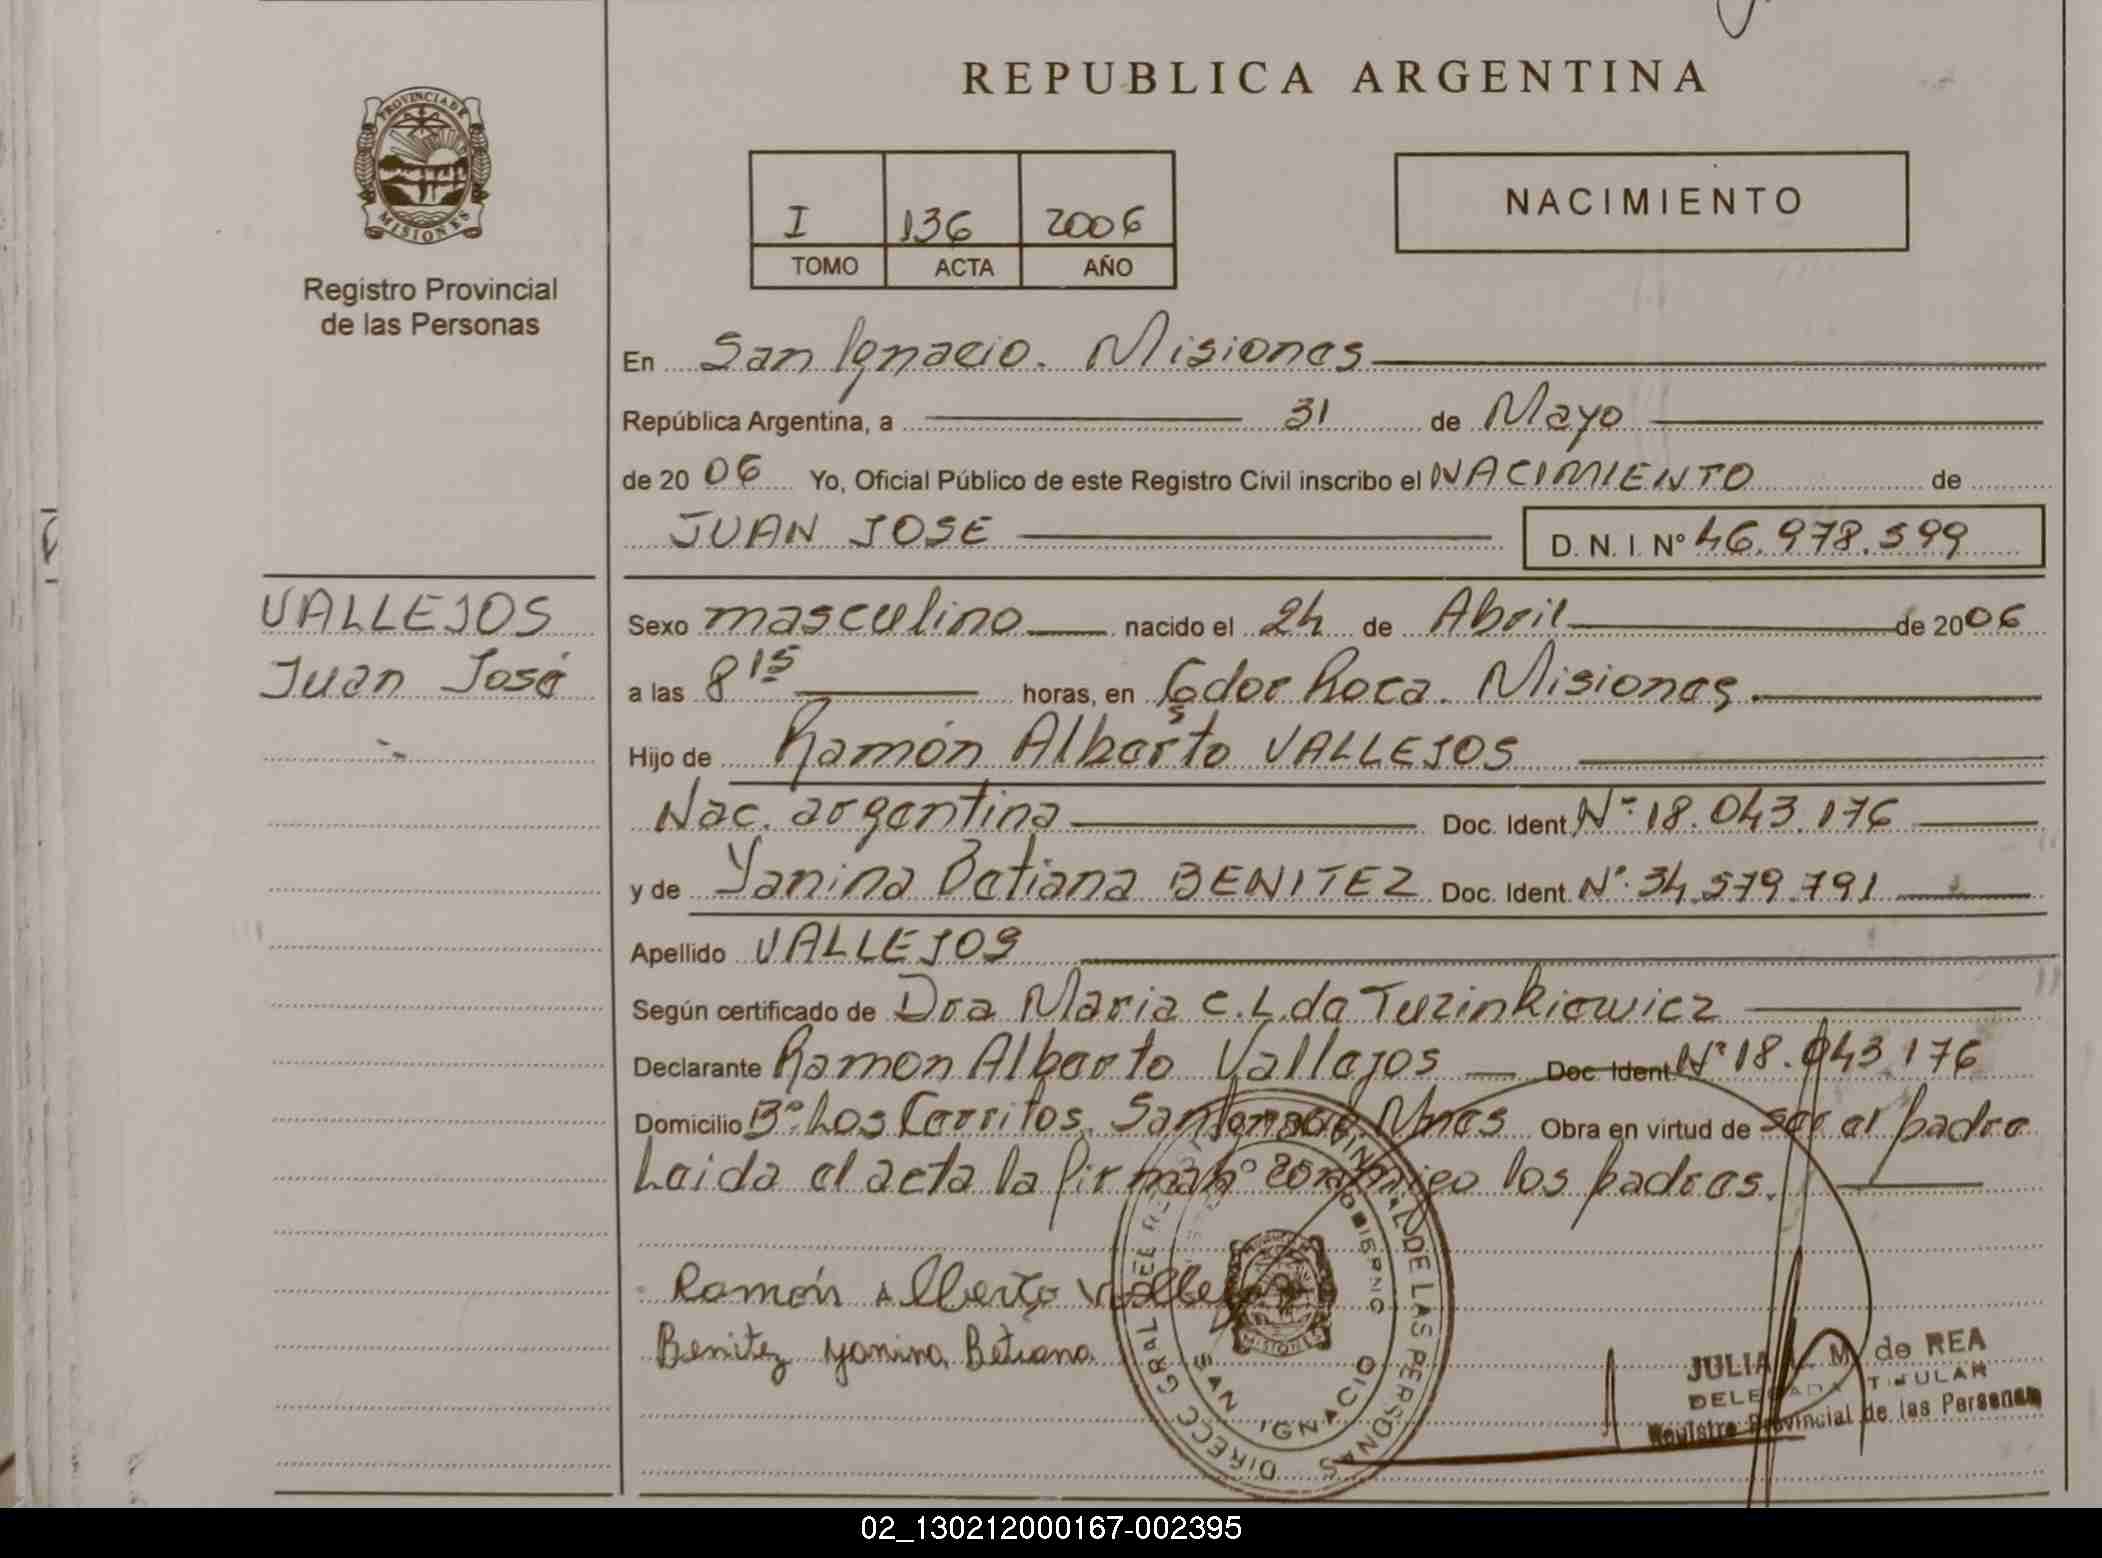 REPUBLICA ARGENTINA
PROVINCIA DE
MISIONES
Registro Provincial
de las Personas
I 136 2006
TOMO ACTA AÑO
NACIMIENTO
En San Ignacio. Misiones
República Argentina, a 31 de Mayo
de 2006 Yo, Oficial Público de este Registro Civil inscribo el NACIMIENTO de
JUAN JOSE D. N. I. N° 46.978.599
VALLEJOS
Juan José
Sexo masculino nacido el 24 de Abril de 2006
a las 8 15 horas, en Gdor Roca. Misiones.
Hijo de Ramón Alberto VALLEJOS
Nac. argentina Doc. Ident. N° 18.043.176
y de Yanina Betiana BENITEZ Doc. Ident. N° 34.579.791
Apellido VALLEJOS
Según certificado de Dra Maria C. L. de Tuzinkiewicz
Declarante Ramon Alberto Vallejos Doc. Ident. N° 18.043.176
Domicilio B° Los Cerritos. San Ignacio Mnes Obra en virtud de ser el padre
Leida el acta la firman conmigo los padres.
Ramón Alberto Vallejos
Benitez yanina Betiana
SAN IGNACIO
JULIA L. M. de REA
DELEGADA TITULAR
Registro Provincial de las Personas
02_130212000167-002395